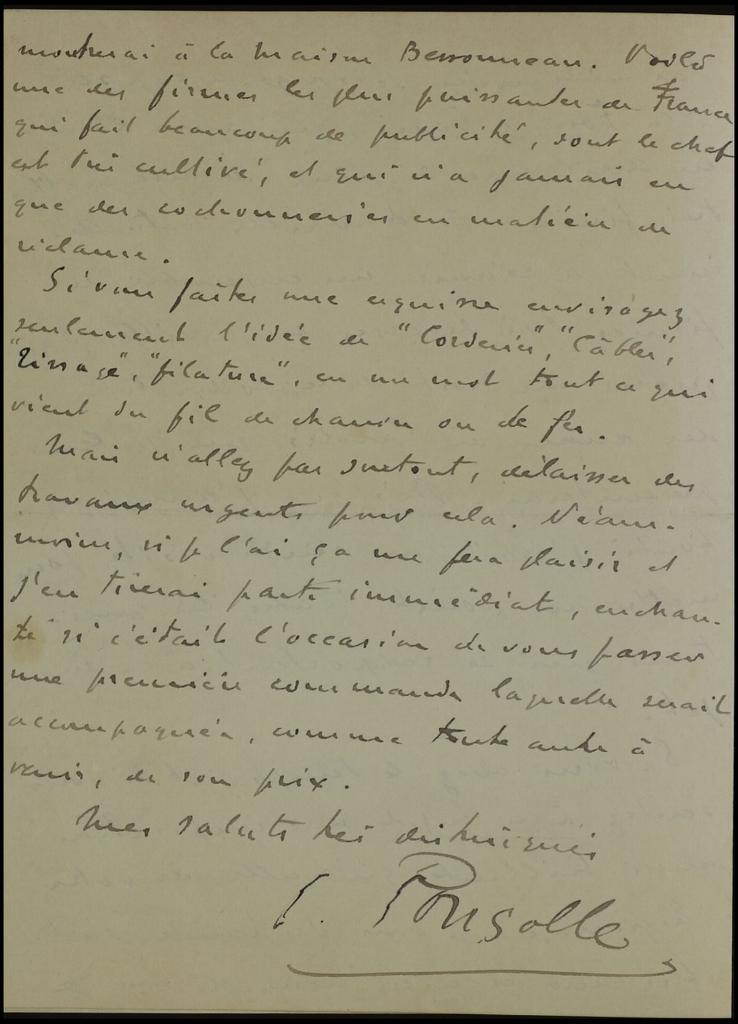 montrerai à la maison Bessonneau. Voilà
une des firmes les plus puissantes de France
qui fait beaucoup de publicité, dont le chef
est très cultivé, et qui n'a jamais eu
que des cochonneries en matière de
réclame.
Si vous faites une esquisse envisagez
seulement l'idée de "Corderie", "Câbles",
"Tissage", "filature", en un mot tout ce qui
vient du fil de chanvre ou de fer.
Mais n'allez pas surtout, délaisser des
travaux urgents pour cela. Néan-
moins, si je l'ai ça me fera plaisir et
j'en tirerai parti immédiat, enchan-
té si c'était l'occasion de vous passer
une première commande laquelle serait
accompagnée, comme toute autre à
venir, de son prix.
Mes saluts très distingués
Ponsolle